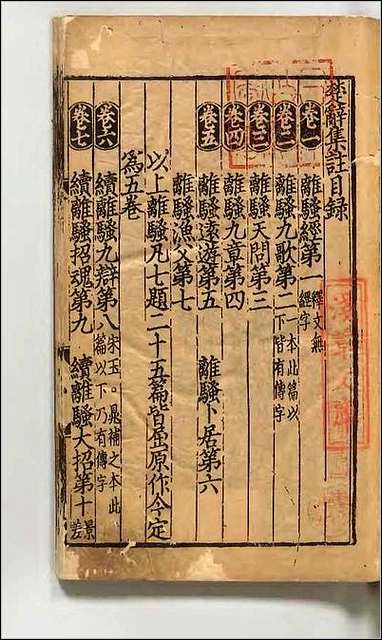 楚辭集註目録
卷一 離騷經第一 釋文無經字
卷二 離騷九歌第二 一本此篇以下皆有傳字
卷三 離騷天問第三
卷四 離騷九章第四
卷五 離騷遠遊第五 離騷卜居第六
離騷漁父第七
以上離騷凡七題二十五篇皆屈原作今定
為五卷
卷六 續離騷九辯第八 宋玉。晁補之本此篇以下乃有傳字
卷七 續離騷招魂第九 續離騷大招第十 景差